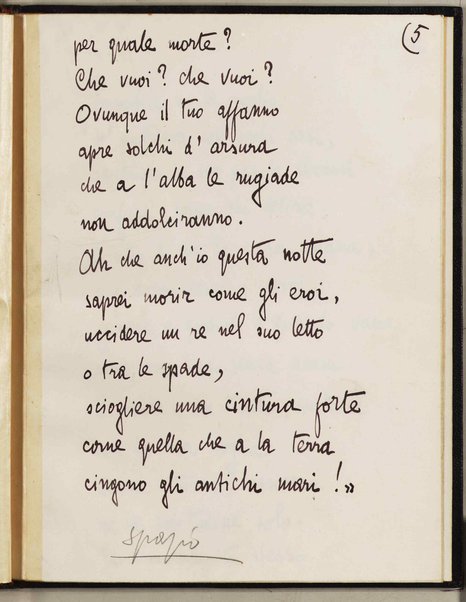 (5
per quale morte?
Che vuoi? che vuoi?
Ovunque il tuo affanno
apre solchi d'arsura
che a l'alba le rugiade
non addolciranno.
Ah che anch'io questa notte
saprei morir come gli eroi,
uccidere un re nel suo letto
o tra le spade,
sciogliere una cintura forte
come quella che a la terra
cingono gli antichi mari!»
spazio